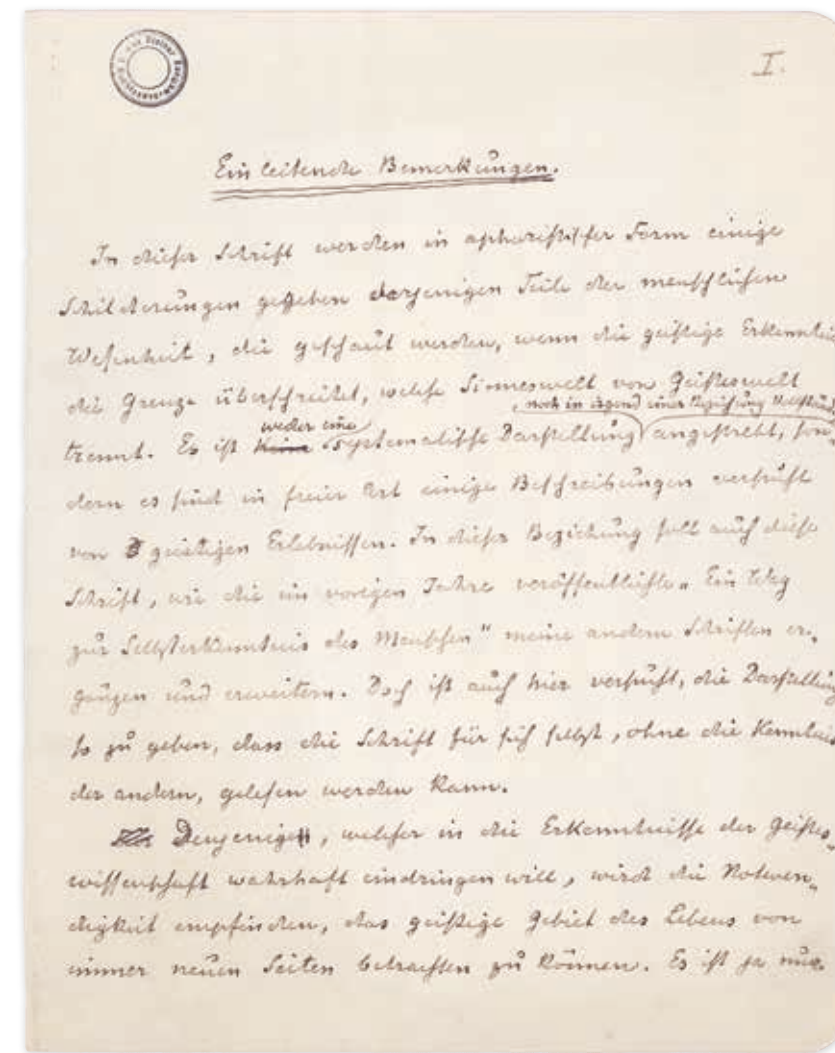 I.
Einleitende Bemerkungen.
In dieser Schrift werden in aphoristischer Form einige
Schilderungen gegeben derjenigen Teile der menschlichen
Wesenheit, die geschaut werden, wenn die geistige Erkenntnis
die Grenze überschreitet, welche Sinneswelt von Geisteswelt
, noch in irgend einer Beziehung Vollständ
weder eine
trennt. Es ist keine systematische Darstellung angestrebt, son„
dern es sind in freier Art einige Beschreibungen versucht
von geistigen Erlebnissen. In dieser Beziehung soll auch diese
Schrift, wie die im vorigen Jahre veröffentlichte „Ein Weg
zur Selbsterkenntnis des Menschen" meine andern Schriften er„
gänzen und erweitern. Doch ist auch hier versucht, die Darstellung
so zu geben, dass die Schrift für sich selbst, ohne die Kenntnis
der andern, gelesen werden kann.
Denjenigen, welcher in die Erkenntnisse der Geistes„
wissenschaft wahrhaft eindringen will, wird die Notwen„
digkeit empfinden, das geistige Gebiet des Lebens von
immer neuen Seiten betrachten zu können. Es ist ja nur